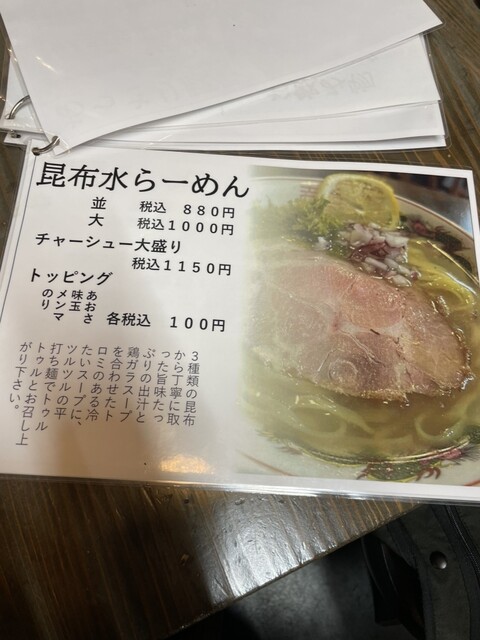 昆布水らーめん
並 税込 880円
大 税込1000円
チャーシュー大盛り
税込1150円
トッピング
のり
メンマ
味玉
あおさ
各税込 100円
3種類の昆布
から丁寧に取
った旨味たっ
ぷりの出汁と
鶏ガラスープ
を合わせたト
ロミのある冷
たいスープに、
ツルツルの平
打ち麺でトゥル
トゥルとお召し上
がり下さい。